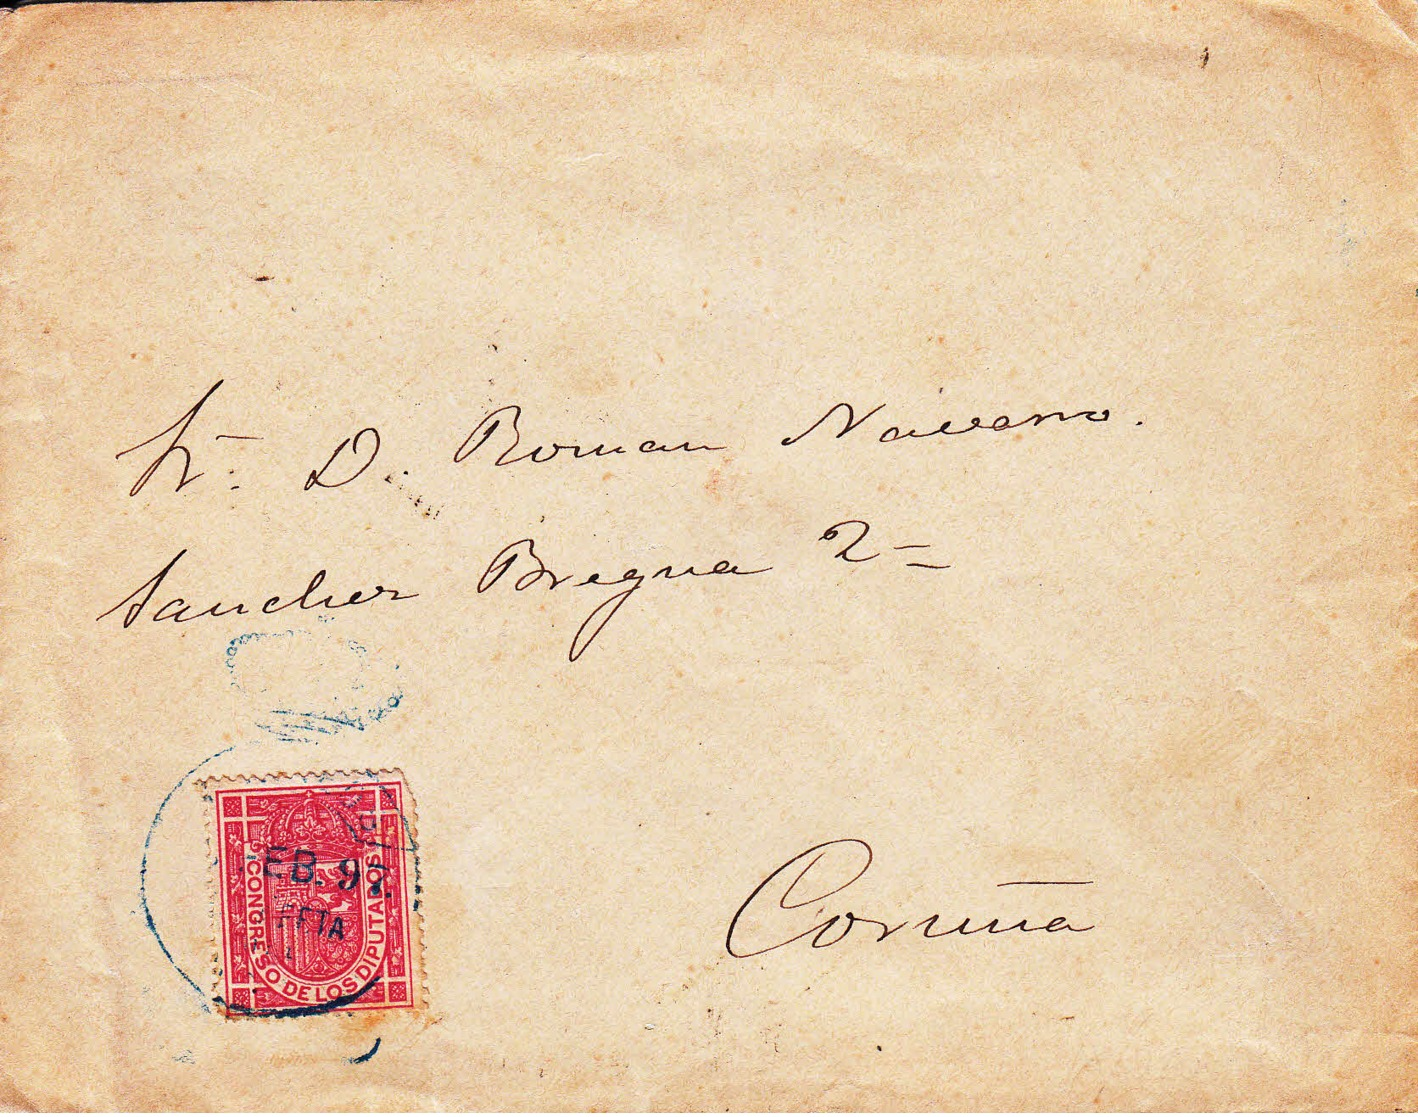 Sr. D. Roman Navarro.
Sanchez Bregua 2=
Coruña
EB. 97.
CONGRESO DE LOS DIPUTADOS